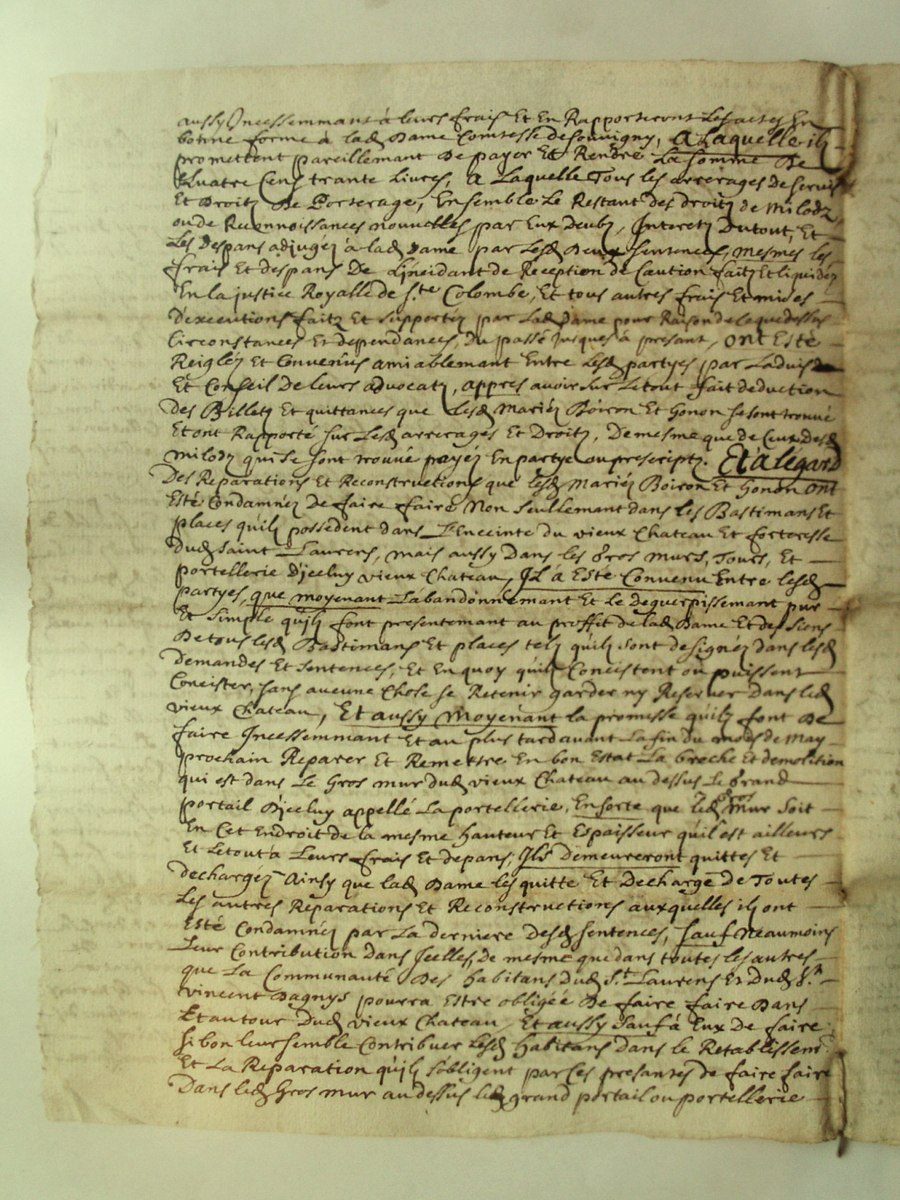 aussy Incessemmant à leurs frais Et En Rapporteront Les actes En
bonne forme à lad Dame Comtesse de Souvigny, A Laquelle ilz
promettent pareillemant De payer Et Rendre La Somme De
Quatre Cens trante Livres, A Laquelle Tous les arrerages de Servis
Et Droitz De Porterage, Ensemble Le Restant des droitz de milodz
ou de Reconnoissances nouvelles par Eux Deubz, Interetz Dutout, Et
Les Despans adjugez à lad Dame par Lesd Deux Sentences, mesmes les
frais Et despans De Lincidant de Reception de Caution faitz Et liquidez
En la justice Royalle de Ste Colombe, Et tous autres frais Et mises
D'executions faitz Et Supportez par Lad Dame pour Raison de ce que dessus
Circonstances Et dependances, Du passé Jusques à presant, ont Esté
Reiglez Et Convenus amiablemant Entre Lesd partyes par Ladvis
Et Conseil de leurs advocatz, appres avoir Sur Letout fait deduction
Des Billetz Et quittances que Lesd Mariez Boiron Et Gonon se sont trouvé
Et ont Rapporté Sur Lesd arrerages Et Droitz, De mesme que de Ceux Desd
milodz qui Se sont trouvé payez En partye ou prescriptz. Et à légard
Des Reparations Et Reconstructions que lesd Mariez Boiron Et Gonon ont
Esté Condamnez de faire faire Non Seullemant dans les Bastimans Et
places quilz possedent dans L'Enceinte du vieux Chateau Et forteresse
Dud Saint Laurens, mais aussy Dans les Gros murs, Tours, Et
portellerie D'jceluy vieux Chateau, Il à Esté Convenu Entre lesd
partyes, que moyenant Labandonnemant Et le deguerpissemant pur
Et Simple quilz font presentemant au proffit de lad Dame Et des Siens
De tous lesd Bastimans Et places telz quilz sont designéz dans lesd
Demandes Et Sentences, Et En quoy quilz Concistent ou puissent
Concister, Sans aucune Chose se Retenir garder ny Reserver Dans led
vieux Chateau, Et aussy Moyenant la promesse quilz font De
faire Incessemmant Et au plus tard avant La fin du mois de May
prochain Reparer Et Remettre En bon Estat La breche Et demolition
qui est dans Le Gros mur dud vieux Chateau au dessus Le Grand
portail D'jceluy appellé La portellerie, En sorte que led Gros mur Soit
En Cet Endroit de la mesme hauteur Et Espaisseur quil est ailleurs
Et Letout à Leurs frais Et depans, Ils Demeureront quittes Et
dechargez Ainsy que lad Dame les quitte Et Decharge De Toutes
Les autres Reparations Et Reconstructions auxquelles ilz ont
Esté Condamnez par La derniere Desd Sentences, Sauf Neaumoins
Leur Contribution dans Jcelles, de mesme que dans toutes les autres
que La Communauté Des habitans dud St Laurens Et Dud St
vincent Dagnys pourra Estre obligée De faire faire Dans
Et autour Dud vieux Chateau, Et aussy Sauf à Eux de faire
Si bon leur semble Contribuer Lesd habitans dans le Retablissemt
Et La Reparation quilz s'obligent par ces presantes de faire faire
Dans led Gros mur au dessus led grand portail ou portellerie